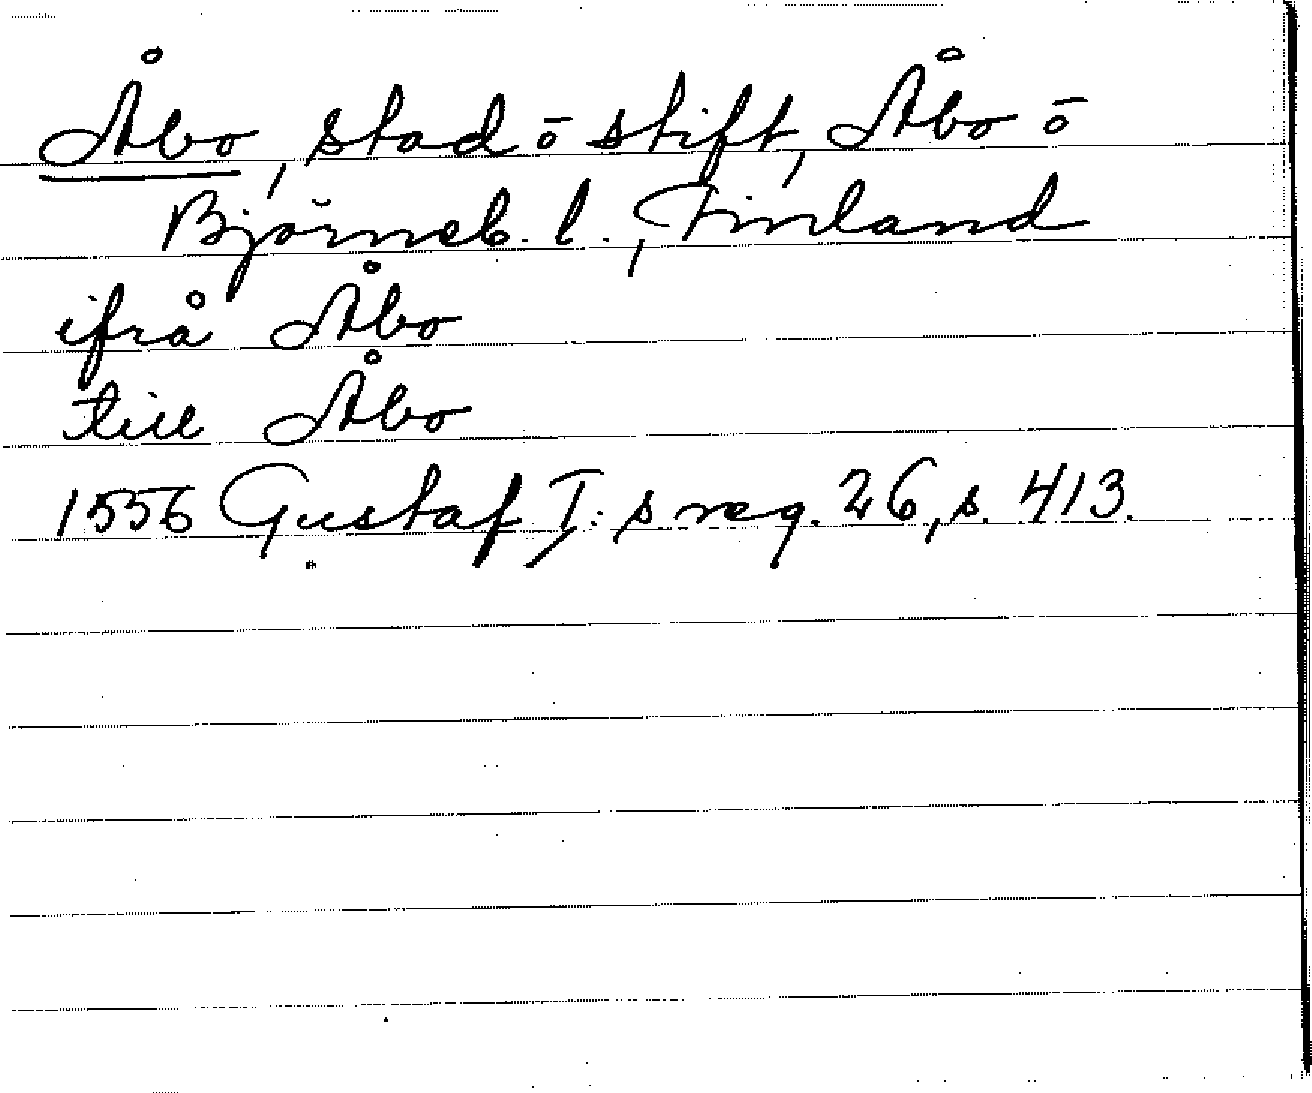 Åbo, stad ō stift, Åbo ō
Björneb. l., Finland
ifrå Åbo
till Åbo
1556 Gustaf I:s reg. 26, s. 413.